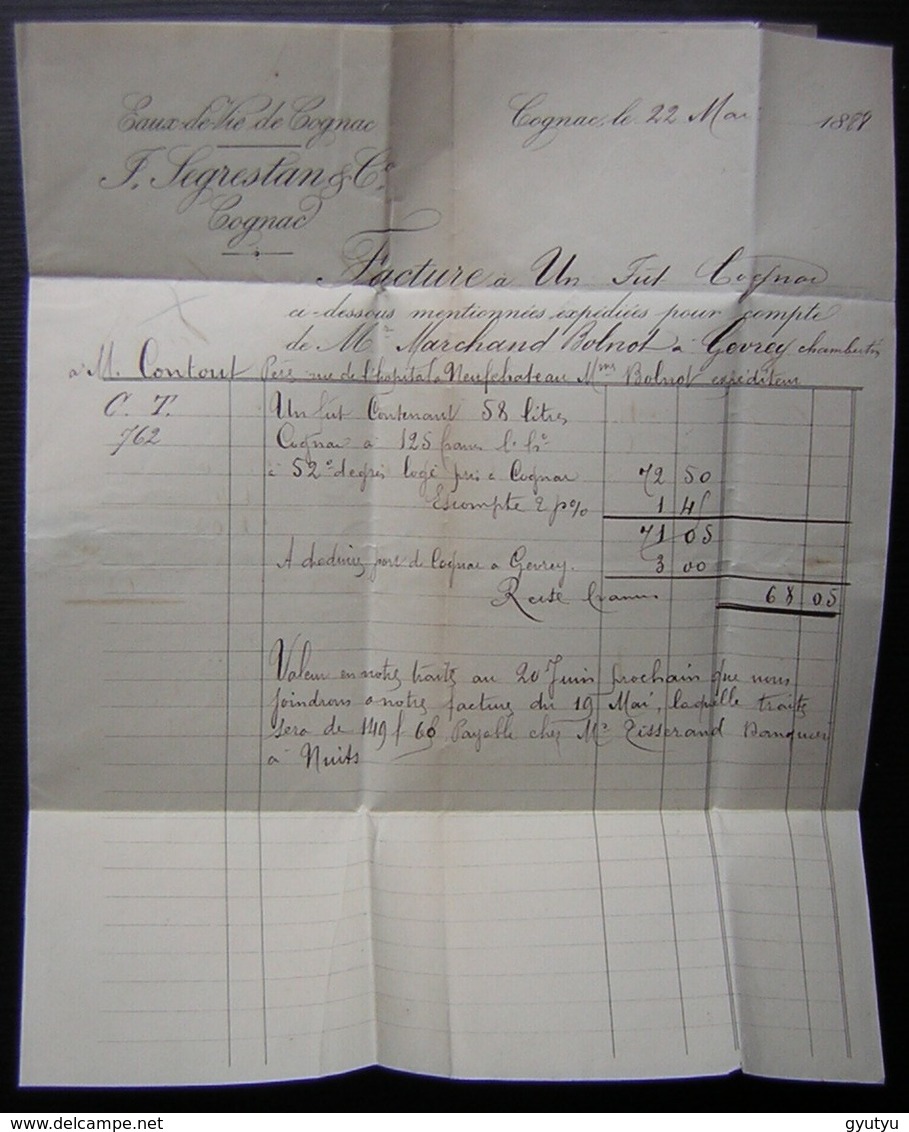 Eaux-de-Vie de Cognac
F. Segrestan & Cie
Cognac
Cognac, le 22 Mai
Facture à Un Fût Cognac
ci-dessous mentionnées expédiées pour compte
de Mr Marchand Bolnot à Gevrey chambertin
à M. Contout Père rue de l'hopital à Neufchateau Bolnot expéditeur
C. T. Un fût Contenant 58 litres
762 Cognac à 125 francs l.
à 52° degrés logé pris à Cognac 72 50
Escompte 2 p% 1 45
71 05
A déduire port de Cognac à Gevrey. 3 00
Reste francs 68 05
Valeur en notre traite au 20 Juin prochain que nous
joindrons à notre facture du 19 Mai, laquelle traite
sera de 149 f 60 Payable chez Mr Tisserand Banquier
à Nuits
gyutyu